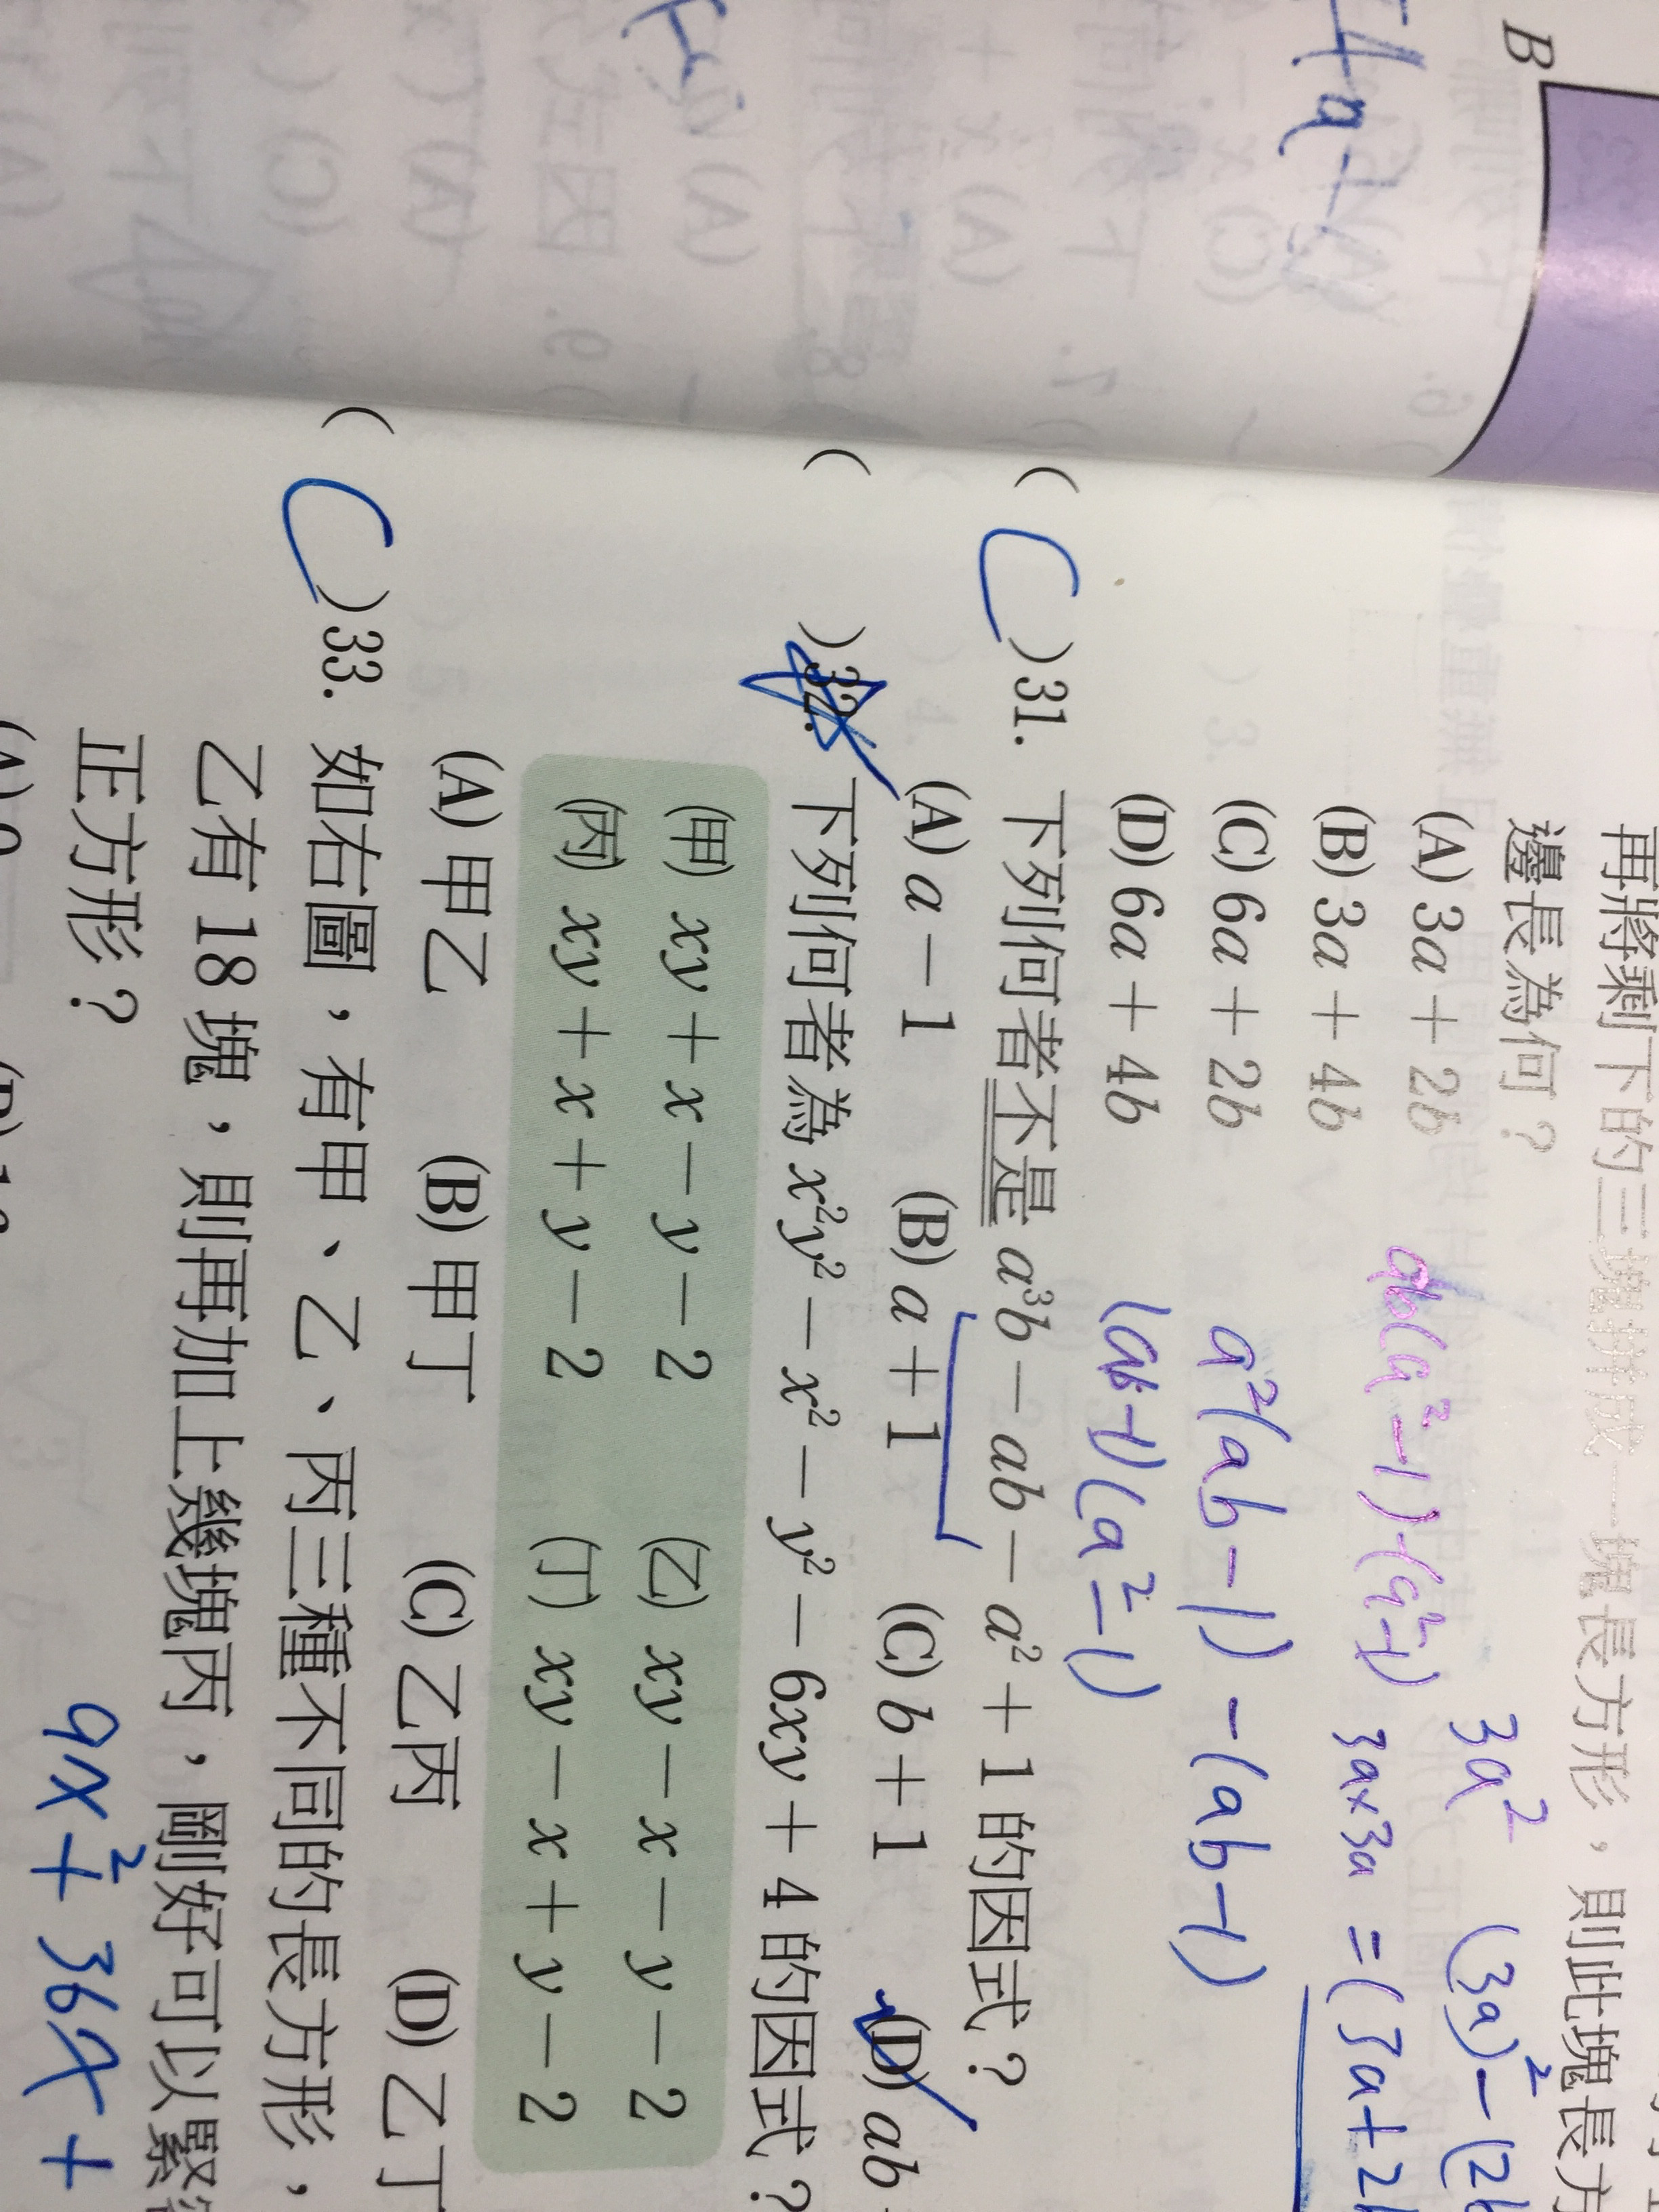 B
再將剩下的三塊拼成一塊長方形，則此塊長方
邊長為何？
(A) 3a + 2b
(B) 3a + 4b
(C) 6a + 2b
(D) 6a + 4b
3a² (3a)² - (2b
ab(a²-1)-(a²-1) 3a×3a = (3a+2b
a²(ab-1) - (ab-1)
(ab-1)(a²-1)
( C )31. 下列何者不是 a³b - ab - a² + 1 的因式？
(A) a - 1 (B) a + 1 (C) b + 1 (D) ab
( )32. 下列何者為 x²y² - x² - y² - 6xy + 4 的因式？
(甲) xy + x - y - 2 (乙) xy - x - y - 2
(丙) xy + x + y - 2 (丁) xy - x + y - 2
(A) 甲乙 (B) 甲丁 (C) 乙丙 (D) 乙丁
( C )33. 如右圖，有甲、乙、丙三種不同的長方形，
乙有 18 塊，則再加上幾塊丙，剛好可以緊
正方形？
9x² + 36x +